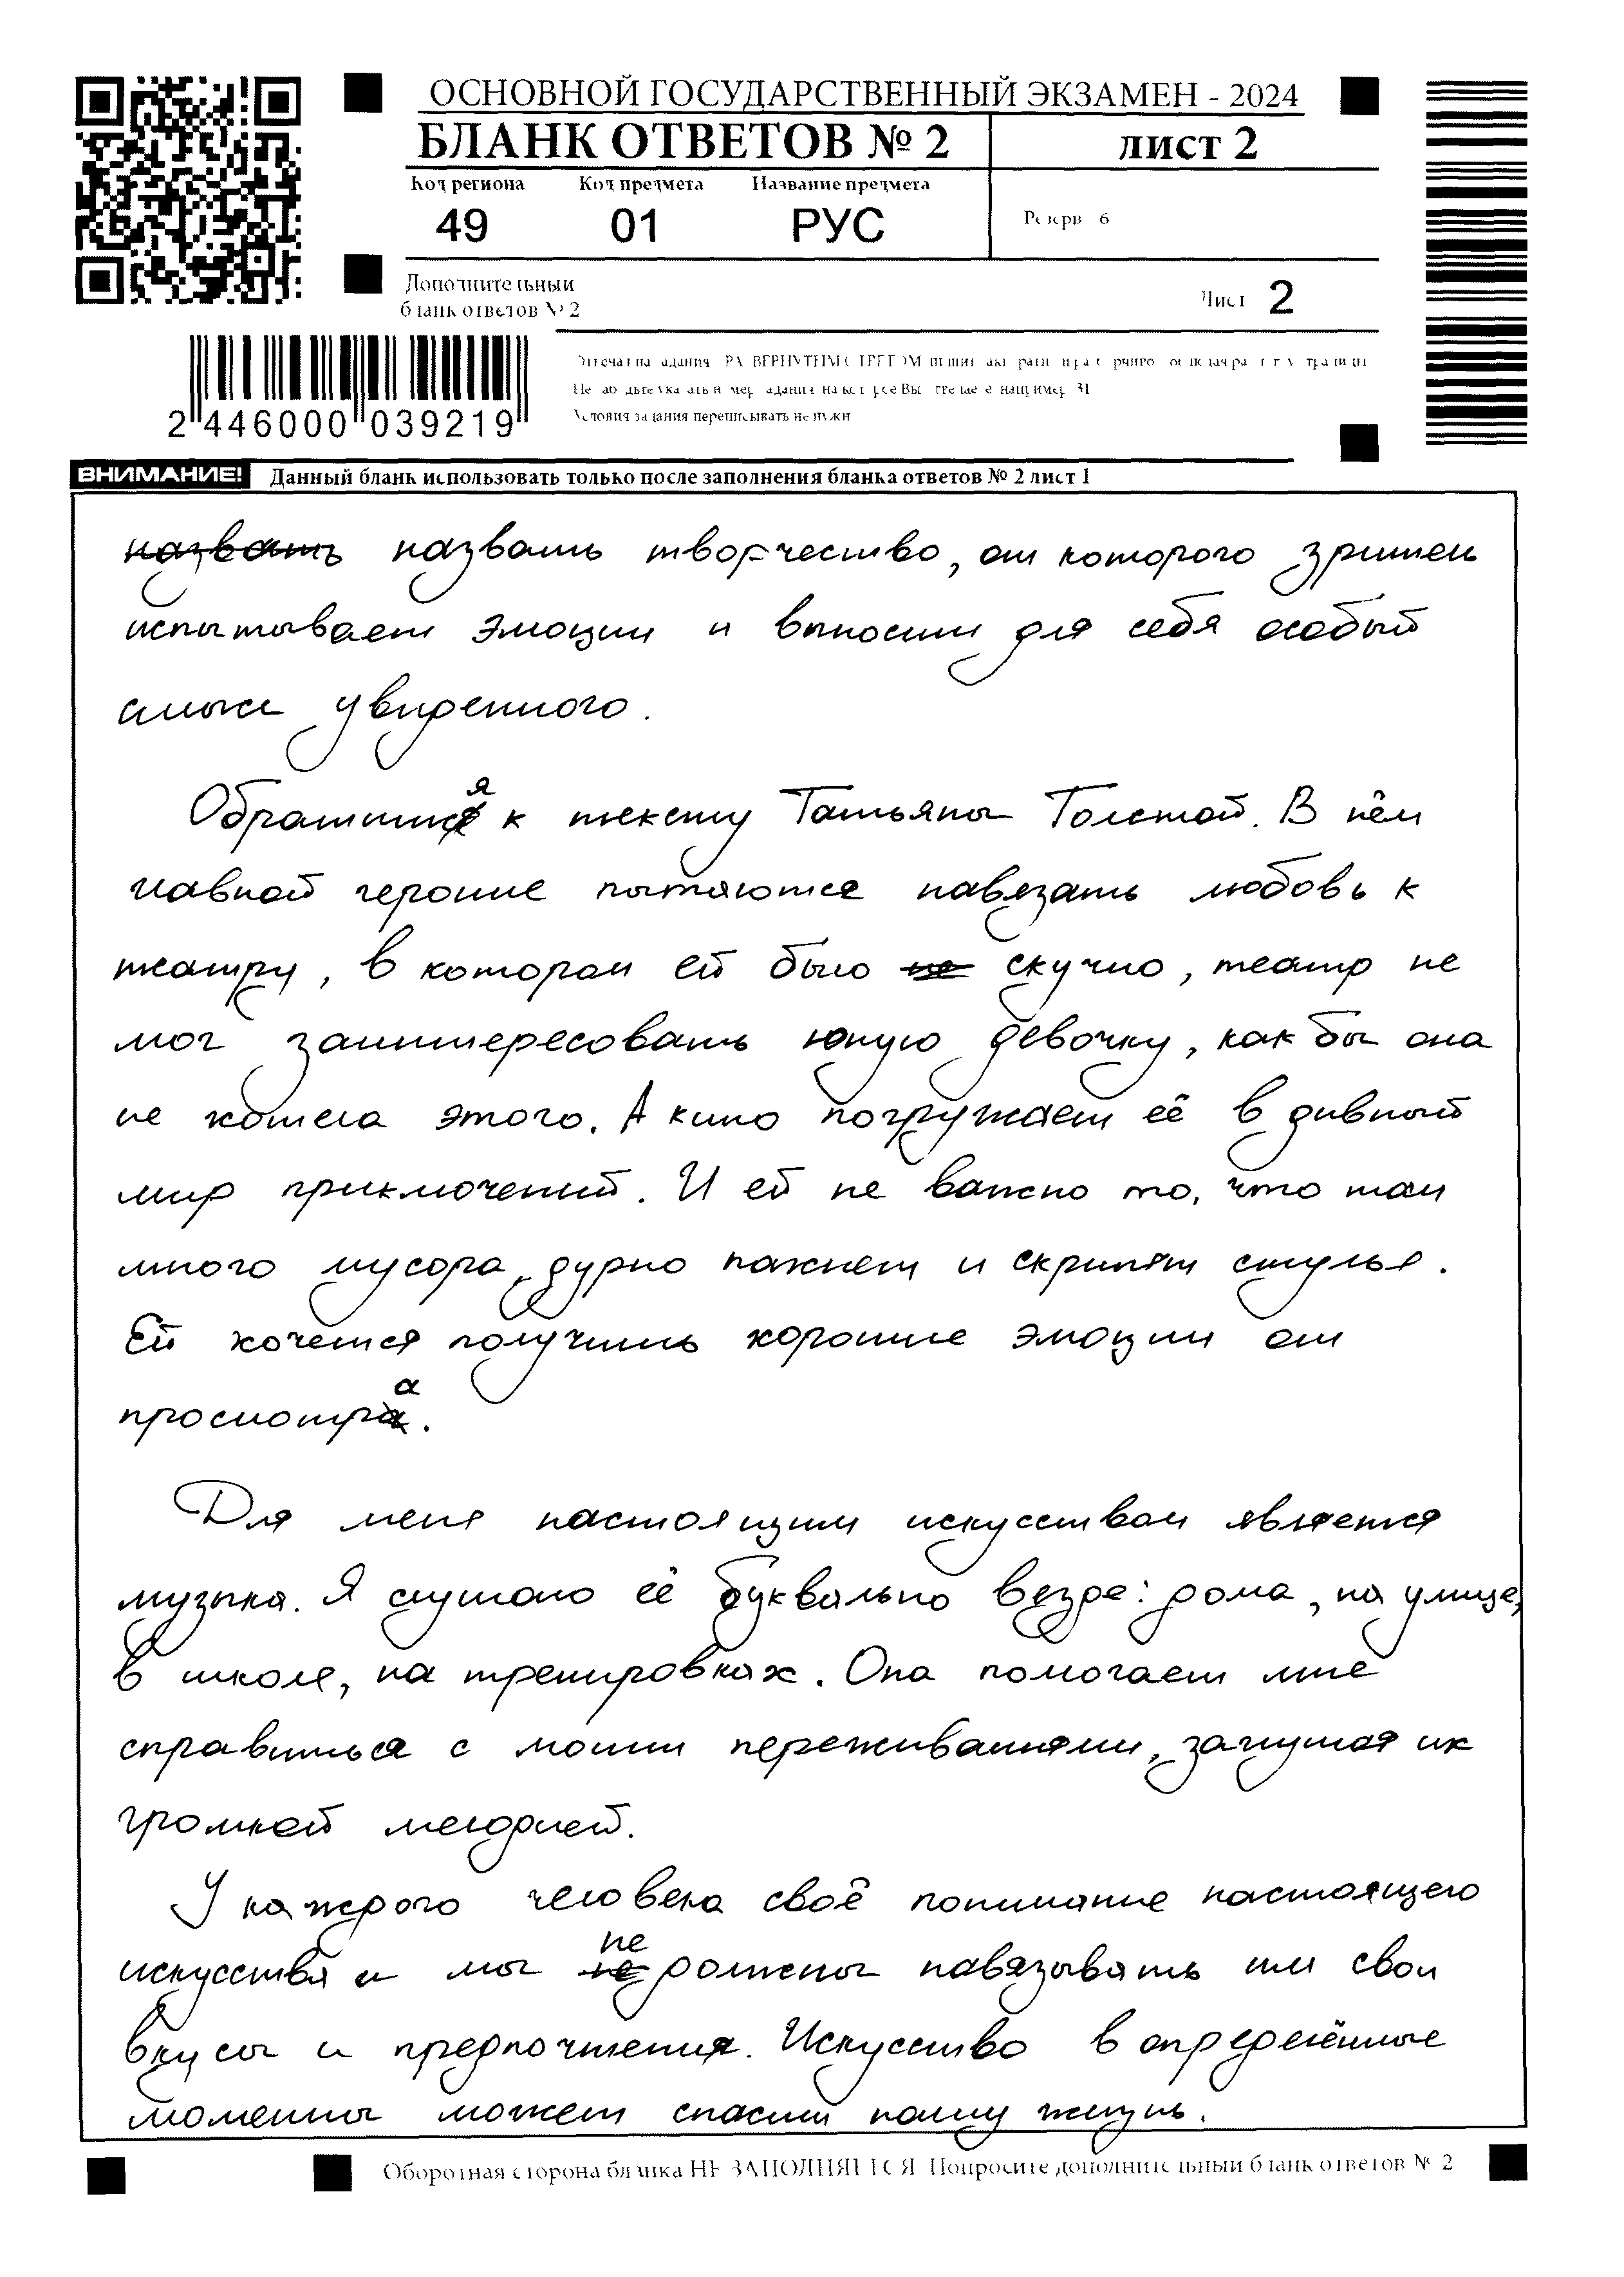 ОСНОВНОЙ ГОСУДАРСТВЕННЫЙ ЭКЗАМЕН - 2024
БЛАНК ОТВЕТОВ № 2
ЛИСТ 2
Код региона Код предмета Название предмета
49 01 РУС
Резерв 6
Дополнительный
бланк ответов № 2
Лист 2
2 446000 039219
Условия задания переписывать не нужно
ВНИМАНИЕ! Данный бланк использовать только после заполнения бланка ответов № 2 лист 1
назвать назвать творчество, от которого зритель
испытывает эмоции и выносит для себя особый
смысл увиденного.
Обратимся к тексту Татьяны Толстой. В нём
главной героине пытаются навязать любовь к
театру, в котором ей было не скучно, театр не
мог заинтересовать юную девочку, как бы она
не хотела этого. А кино погружает её в дивный
мир приключений. И ей не важно то, что там
много мусора, дурно пахнет и скрипят стулья.
Ей хочется получить хорошие эмоции от
просмотра.
Для меня настоящим искусством является
музыка. Я слушаю её буквально везде: дома, на улице,
в школе, на тренировках. Она помогает мне
справиться с моими переживаниями, заглушая их
громкой мелодией.
У каждого человека своё понимание настоящего
искусства и мы не должны навязывать им свои
вкусы и предпочтения. Искусство в определённые
моменты может спасти нашу жизнь.
Оборотная сторона бланка НЕ ЗАПОЛНЯЕТСЯ. Попросите дополнительный бланк ответов № 2